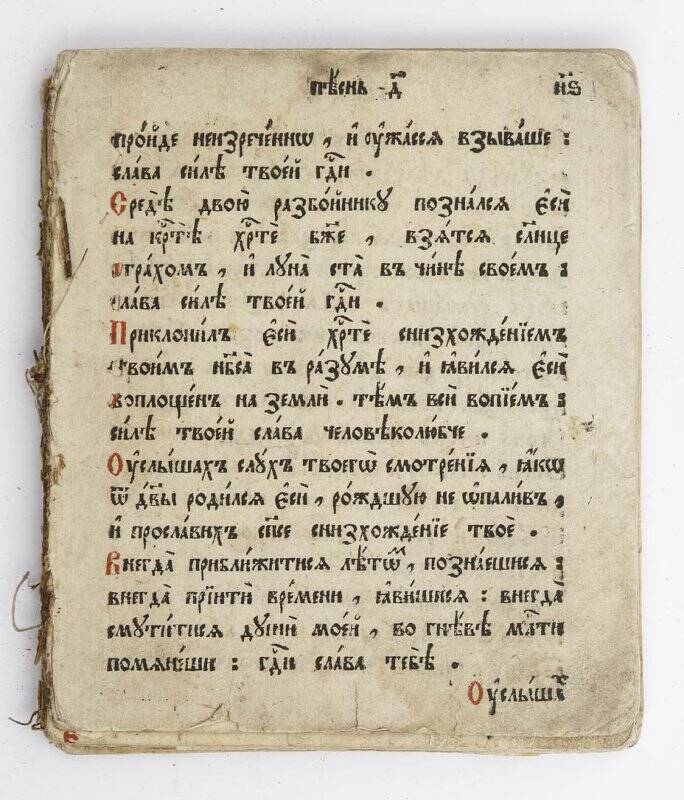 пѣ́снь д҃ н҃ѕ
про́йде неизрече́ннѡ , и҆ ᲂу҆жа́сся взыва́ше :
сла́ва си́лѣ твое́й гдⷭ҇и .
Средѣ̀ двою̀ разбо́йникꙋ позна́лся є҆сѝ
на крⷭ҇тѣ̀ хрⷭ҇тѐ бж҃е , взятся сл҃нце
страхомъ , и҆ лꙋна̀ ста̀ въ чи́нѣ свое́мъ :
сла́ва си́лѣ твое́й гдⷭ҇и .
Приклони́лъ є҆сѝ хрⷭ҇тѐ снизхожде́нїемъ
твои́мъ нб҃са̀ въ ра́зꙋмѣ , и҆ ꙗ҆ви́лся є҆сѝ
воплоще́нъ на землѝ . тѣ́мъ всѝ вопїе́мъ :
си́лѣ твое́й сла́ва человѣколю́бче .
Оу҆слы́шахъ слꙋ́хъ твоегѡ̀ смотре́нїя , ꙗ҆́кѡ
ѿ дв҃ы роди́лся є҆сѝ , ро́ждшꙋю не ѡ҆пали́въ ,
и҆ просла́вихъ сп҃се снизхожде́нїе твоѐ .
Внегда̀ прибли́житися лѣ́тѡⷨ , позна́ешися :
внегда̀ прїитѝ вре́мени , ꙗ҆ви́шися : внегда̀
смꙋти́тися дꙋшѝ мое́й , во гнѣ́вѣ млⷭ҇ти
помяне́ши : гдⷭ҇и сла́ва тебѣ̀ .
Оу҆слы́шаⷯ